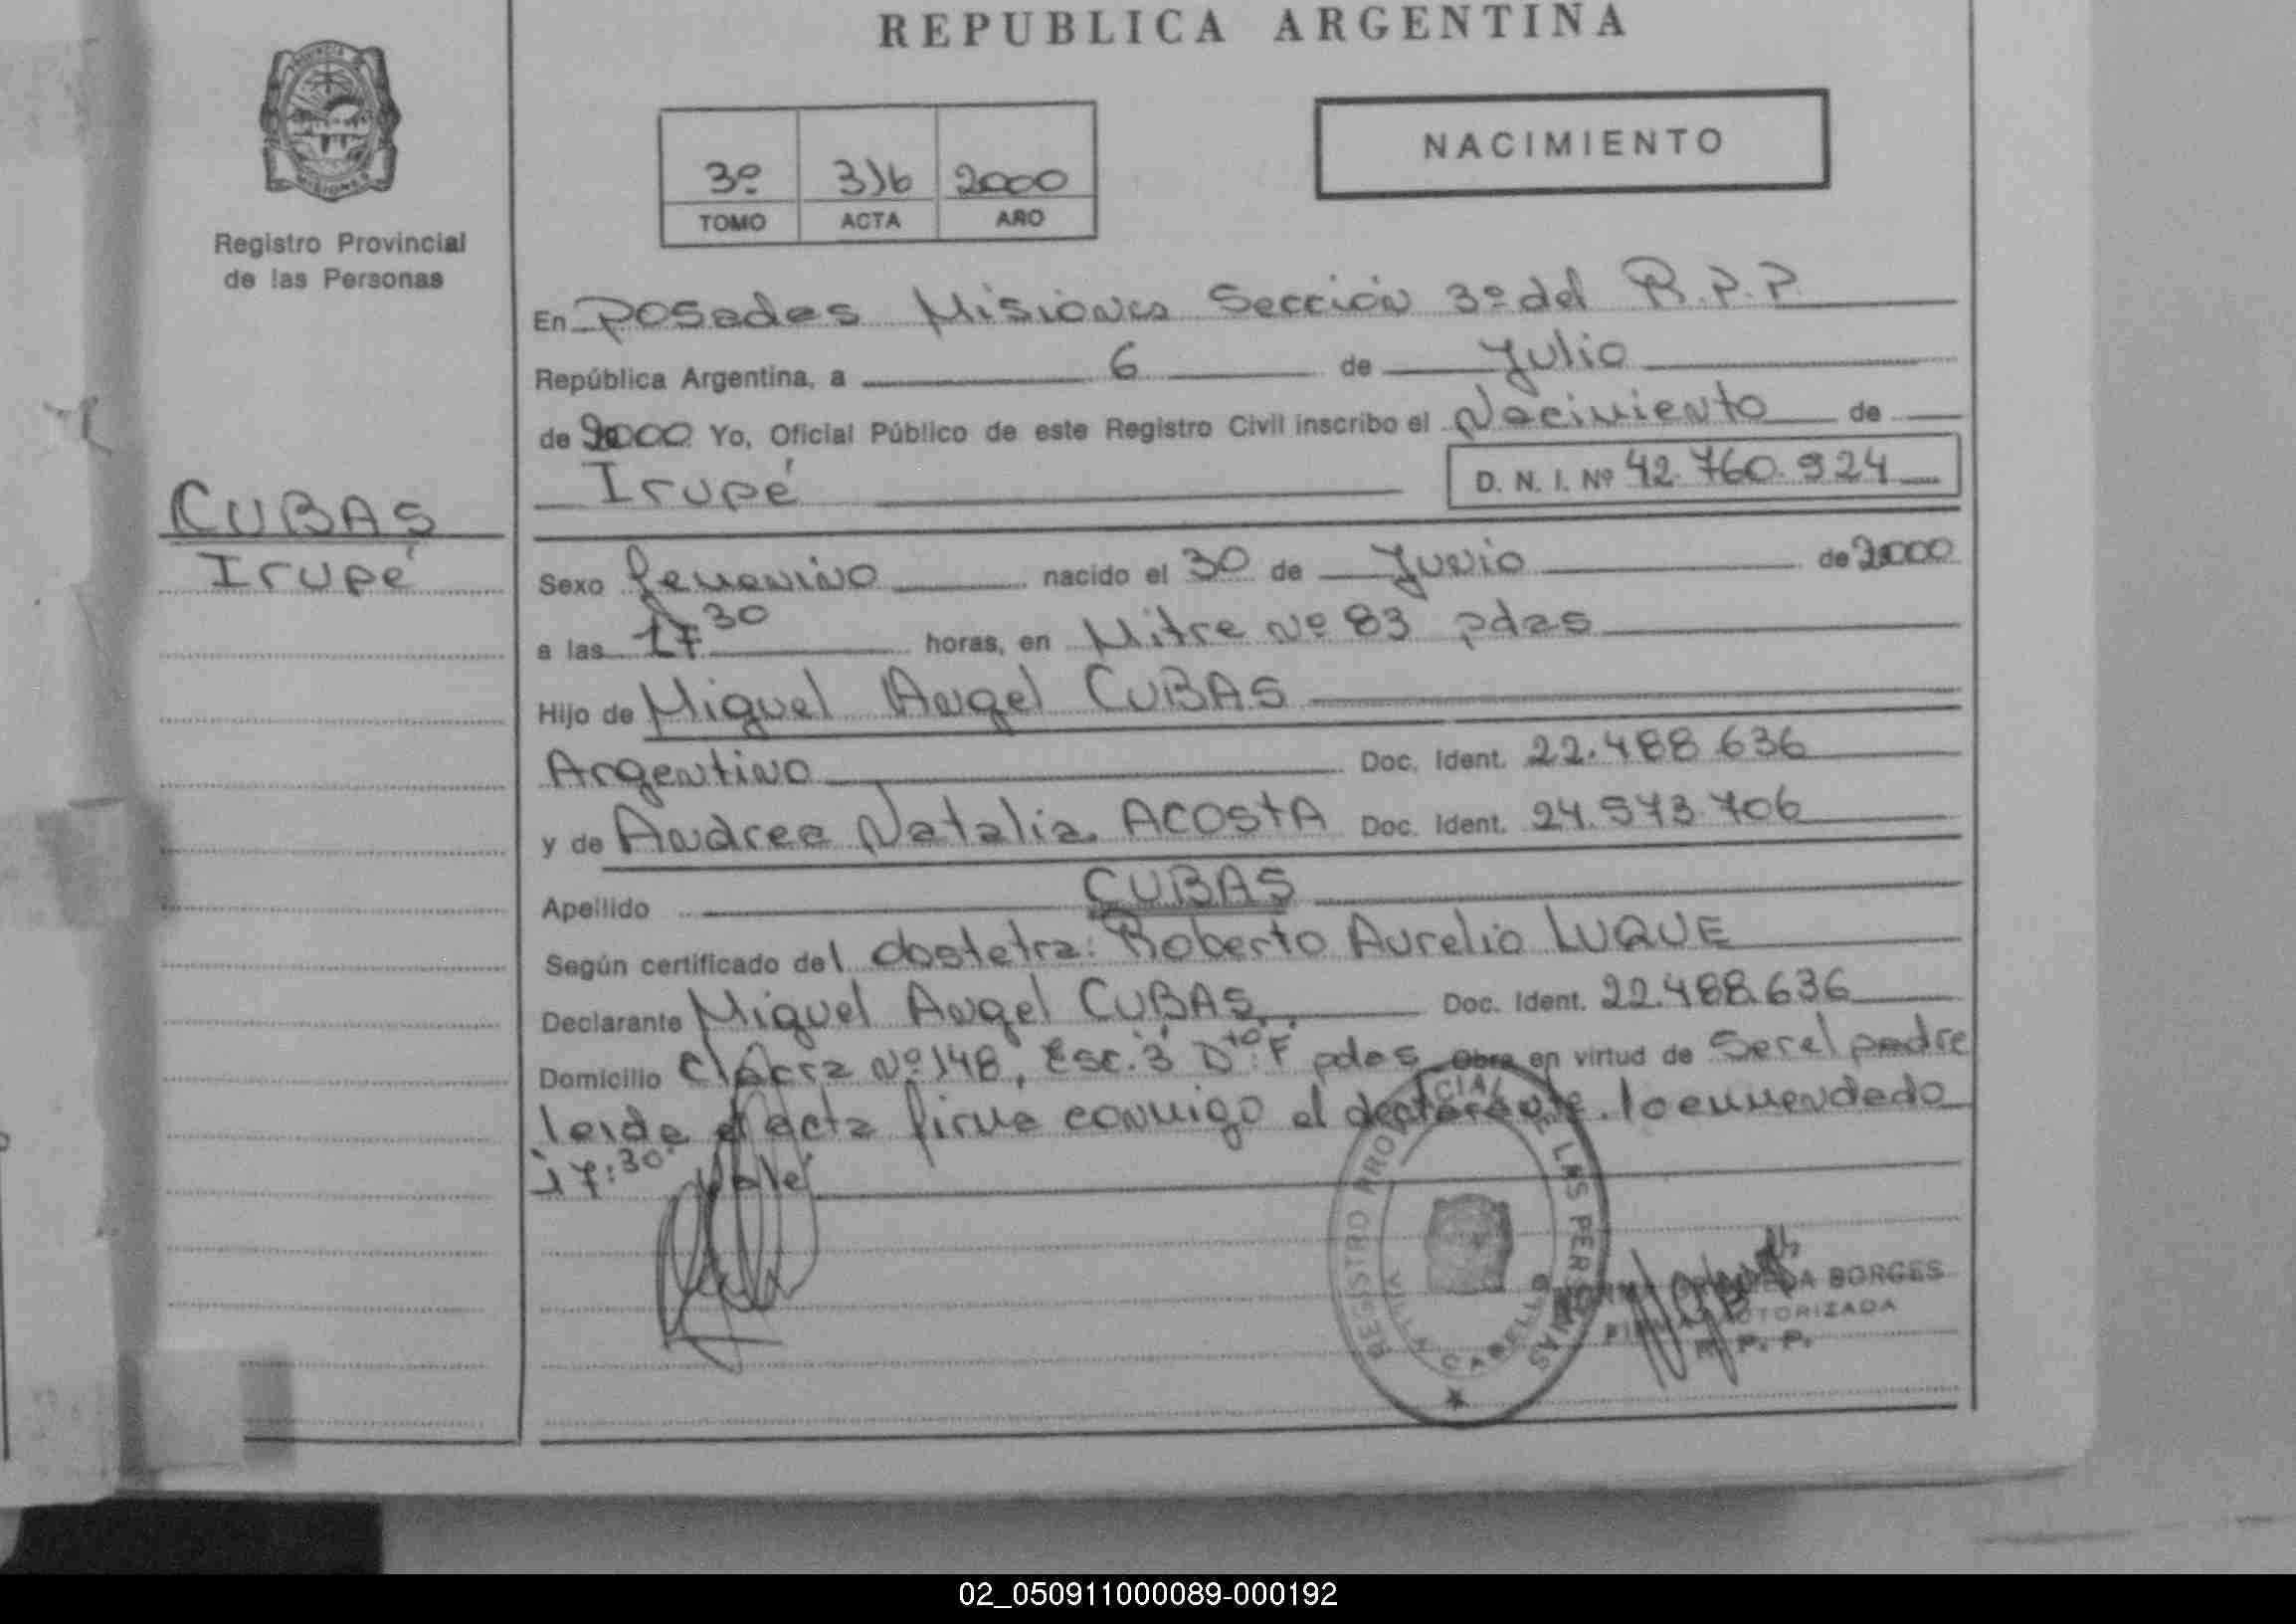 REPUBLICA ARGENTINA
PROVINCIA DE
MISIONES
Registro Provincial
de las Personas
NACIMIENTO
3º 316 2000
TOMO ACTA AÑO
En Posadas Misiones Sección 3º del R.P.P
República Argentina, a 6 de Julio
de 2000 Yo, Oficial Público de este Registro Civil inscribo el Nacimiento de
Irupé D. N. I. Nº 42.760.924
CUBAS
Irupé
Sexo femenino nacido el 30 de Junio de 2000
a las 17 30 horas, en Mitre Nº 83 pdas
Hijo de Miguel Angel CUBAS
Argentino Doc. Ident. 22.488.636
y de Andrea Natalia ACOSTA Doc. Ident. 24.573.706
Apellido CUBAS
Según certificado del obstetra: Roberto Aurelio LUQUE
Declarante Miguel Angel CUBAS Doc. Ident. 22.488.636
Domicilio Chacra Nº 148, Esc. 3 Dto. F pdas Obra en virtud de Ser el padre
leida el acta firma conmigo el declarante. lo enmendado
17:30 Vale
REGISTRO PROVINCIAL DE LAS PERSONAS
VILLA CABELLO
BORGES
FIRMA AUTORIZADA
R. P. P.
02_050911000089-000192